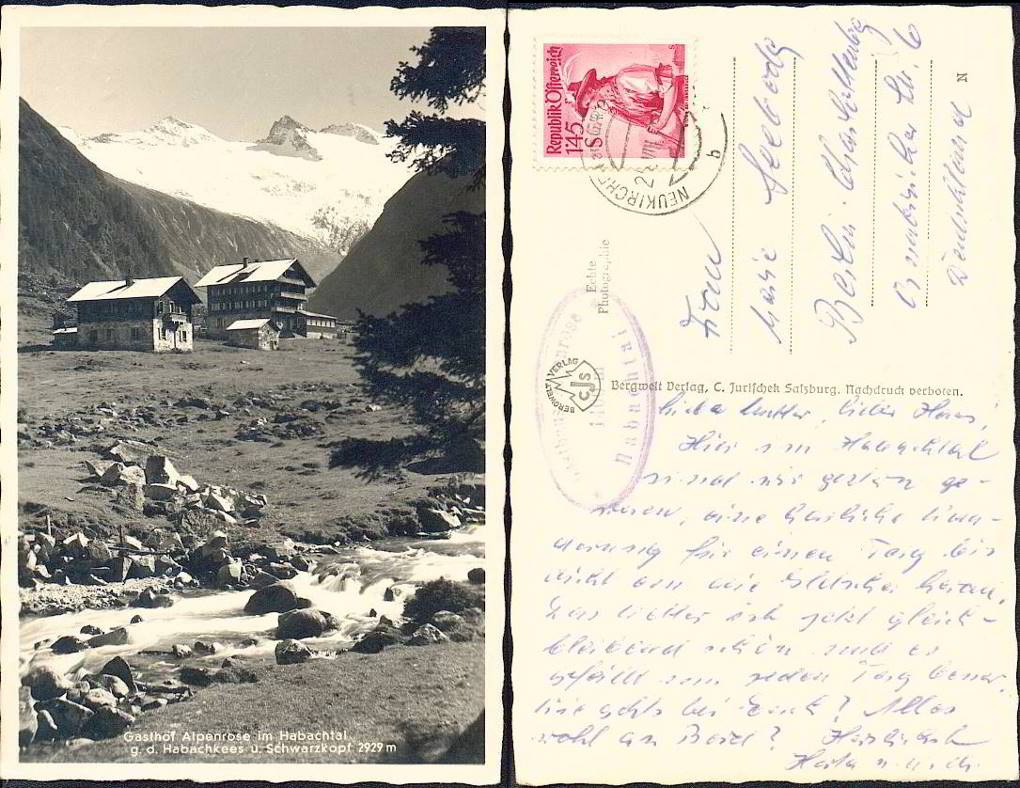 Gasthof Alpenrose im Habachtal
g. d. Habachkees u. Schwarzkopf 2929 m
Republik Österreich
145
S
NEUKIRCHE
h
Echte
Photographie
Alpenrose
Habachtal
BERGWELT VERLAG
CJS
Bergwelt Verlag, C. Jurischek Salzburg. Nachdruck verboten.
N
Frau
Berlin-Charlottenbg
Deutschland
Liebe Mutter, lieber Hans,
Hier im Habachtal
sind wir gestern ge-
wesen, eine herrliche Wan-
derung für einen Tag bis
dicht an die Gletscher heran.
Das Wetter ist jetzt gleich-
bleibend schön und es
gefällt uns jeden Tag besser.
Wie geht's bei Euch? Alles
wohl an Bord? Herzlichst
Herta